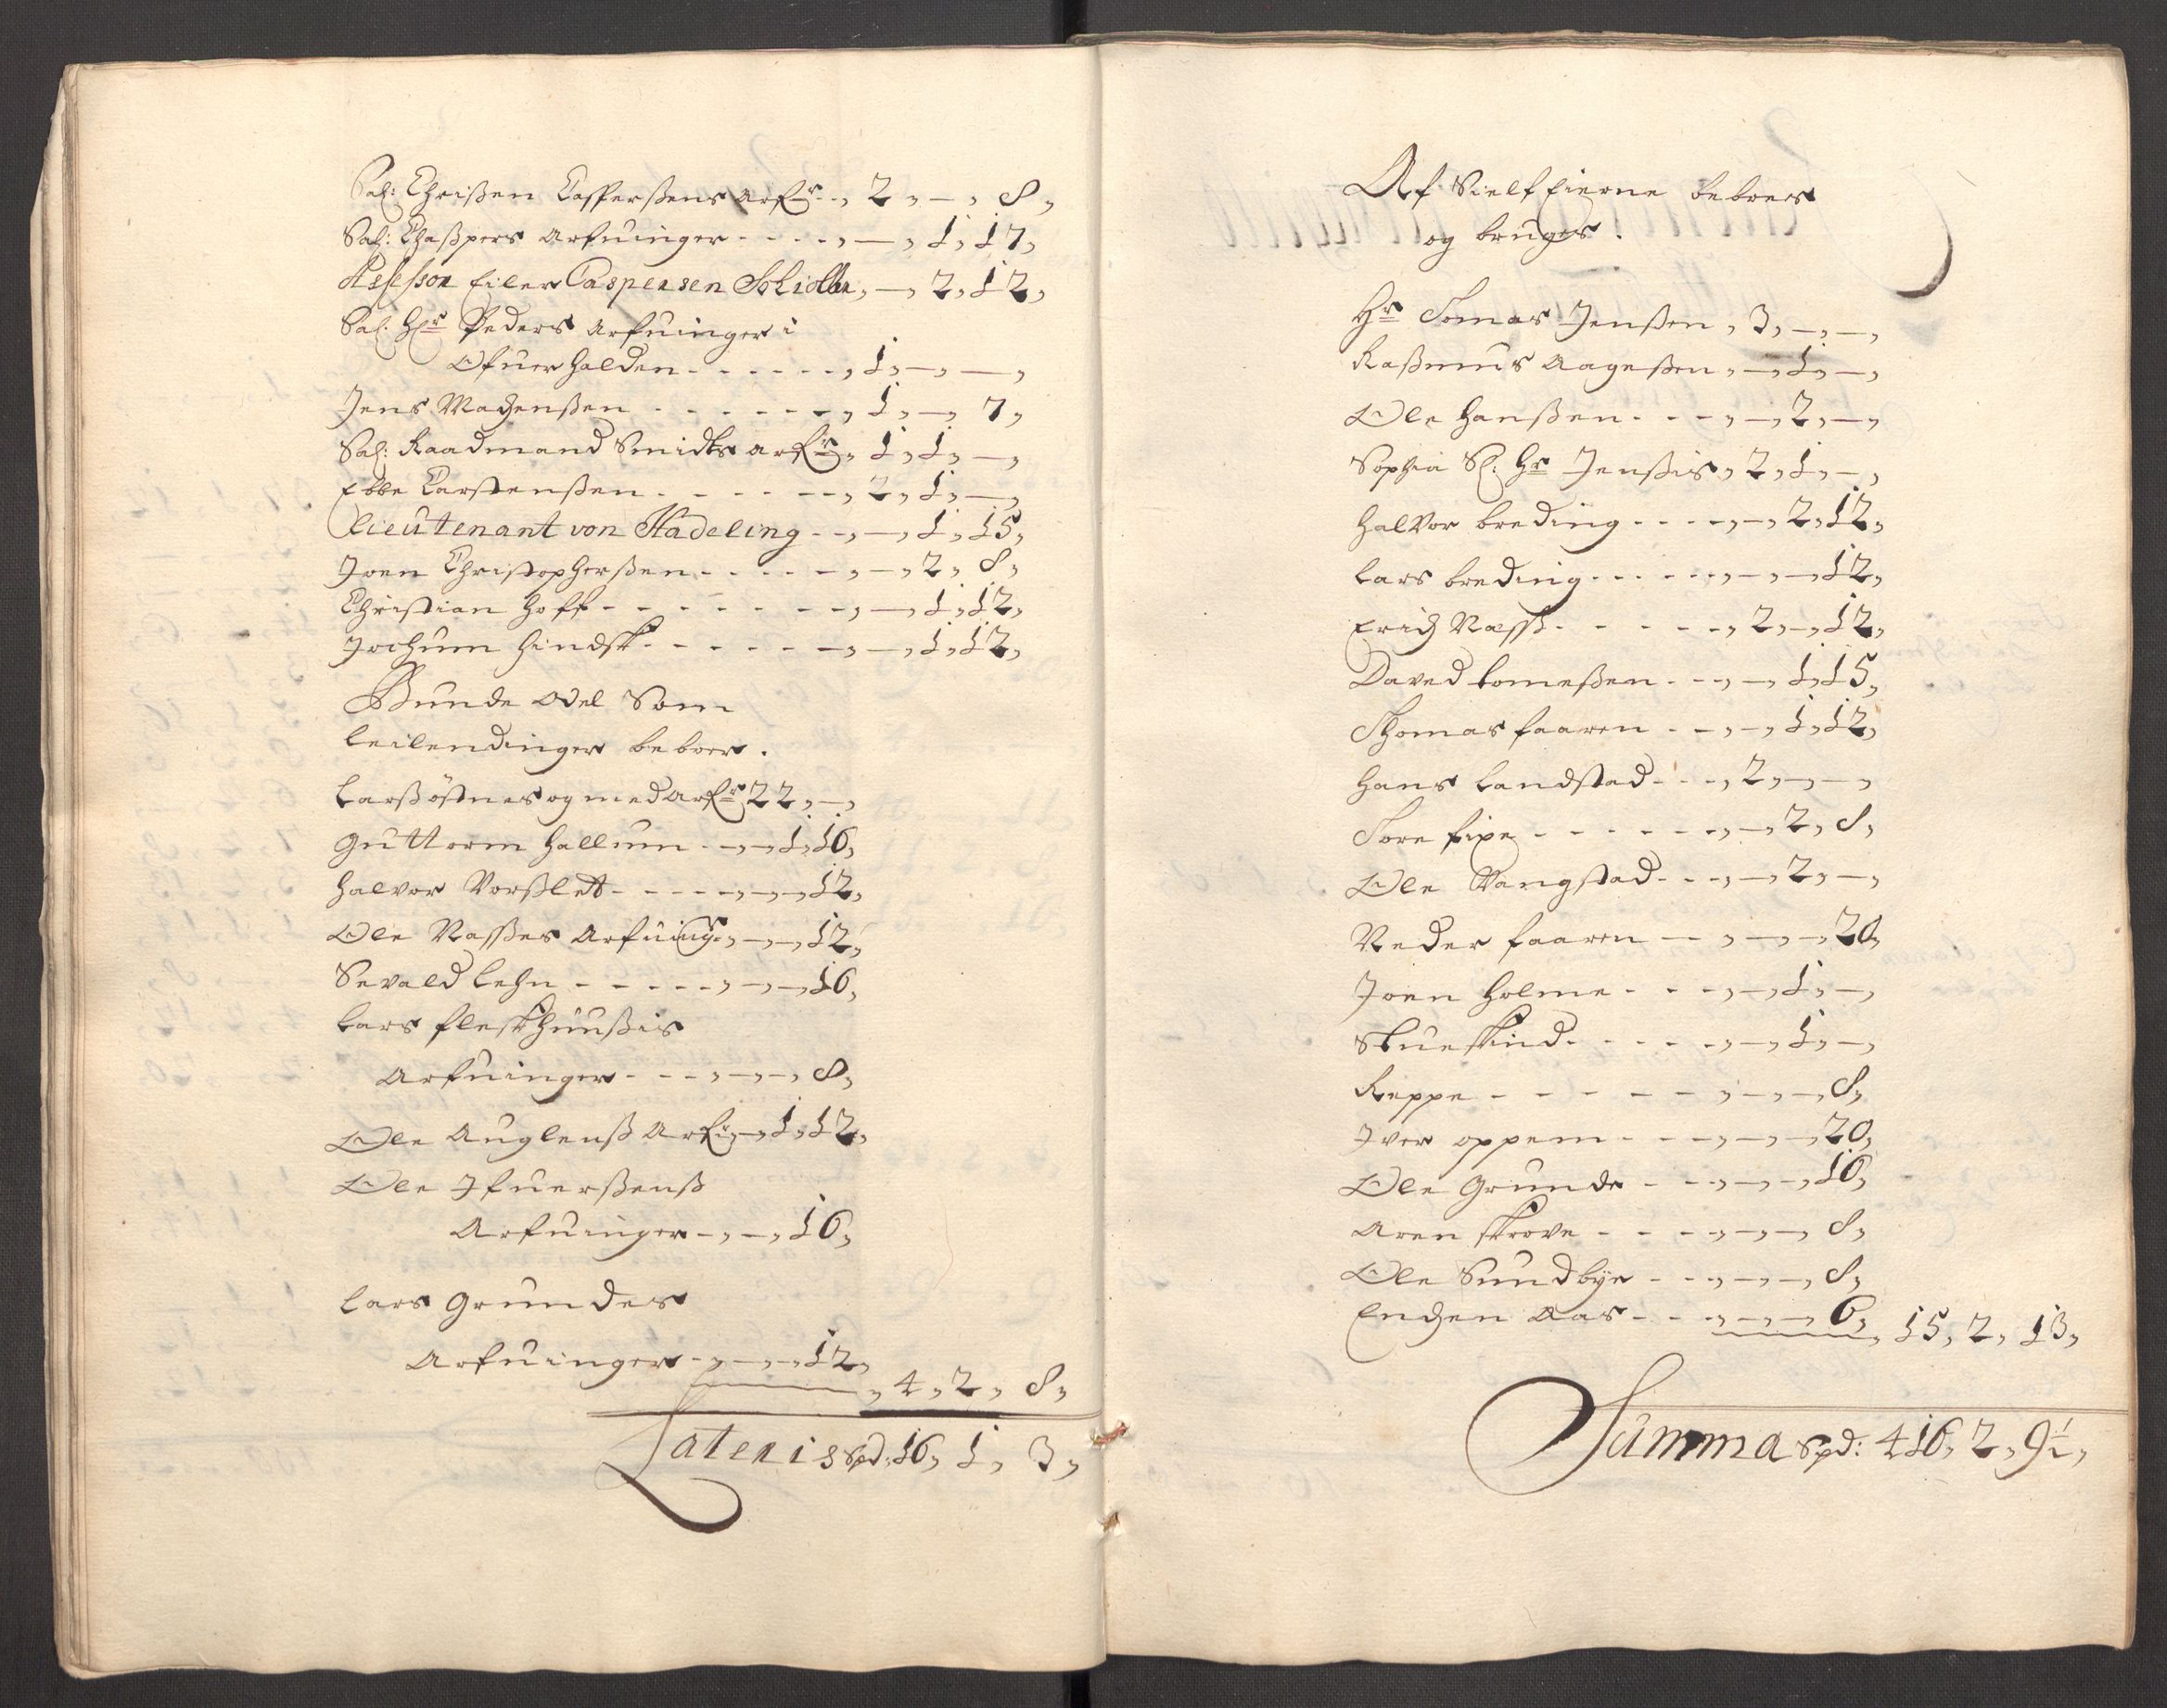 Sal: Chrißen Casperßens Arf:r -, 2, -, 8,
Sal: Chaßpers Arfuinger - - - -, -, 1, 17,
Assessor Eiler Caspersen Schiøller, -, 2, 12,
Sal: Hr Peders Arfuinger i
Ofuerhalden - - - - - -, 1, -, -,
Jens Madhenßen - - - - - - -, 1, -, 7,
Sal: Raadmand Smidts Arf:r, 1, 1, -,
Ebbe Carstenßen - - - - - -, 2, 1, -,
Lieutenant von Hadeling - -, -, 1, 15,
Joen Christopherßen - - - - -, -, 2, 8,
Christian Hoff - - - - - - - -, -, 1, 12,
Jochum Hindsk - - - - - - -, -, 1, 12,
Bunde Odel Som
leilendinger beboer.
Larß östnes og med Arf:r 2 2, -,
Guttorm Hallum - -, -, 1, 16,
Halvor Vorßlett - - - -, -, -, 12,
Ole Naßes Arfuing:, -, -, 12,
Sevald Lehn - - - - -, -, -, 16,
Lars fleskhuußis
Arfuinger - - -, -, -, 8,
Ole Auglenß Arf:r, -, 1, 12,
Ole Ifuerßenß
Arfuinger -, -, 16,
Lars Grundes
Arfuinger -, -, -, 12,
, 4, 2, 8,
Lateris Spd: 16, 1, 3,
Af Sielf Eierne beboes
og bruges.
Hr Tomas Jenßen, 3, -, -,
Raßmus Aageßen, -, 1, -,
Ole Hanßen - - -, -, 2, -,
Sophia Sl: Hr Jenßis, 2, 1, -,
Halvor breding - - - -, -, 2, 12,
Lars breding - - - - -, -, -, 12,
Erich Næss - - - - -, 2, -, 12,
Daved tomeßen - - -, -, 1, 15,
Thomas faaren - -, -, 1, 12,
Hans Landstad - - -, 2, -, -,
Tore fixe - - - - - -, -, 2, 8,
Ole Vangstad - - -, -, 2, -,
Neder faaren -, -, -, 20,
Joen Holme - - -, -, 1, -,
Skueskind - - - - -, -, 1, -,
Reppe - - - - - -, -, -, 8,
Iver oppem - - -, -, -, 20,
Ole Grunde - - -, -, -, 16,
Aren skrove - - -, -, -, 8,
Ole Sundbye - - -, -, -, 8,
Endhen Aas - - -, -, -, 6,
, 15, 2, 13,
Summa Spd: 416, 2, 9½,